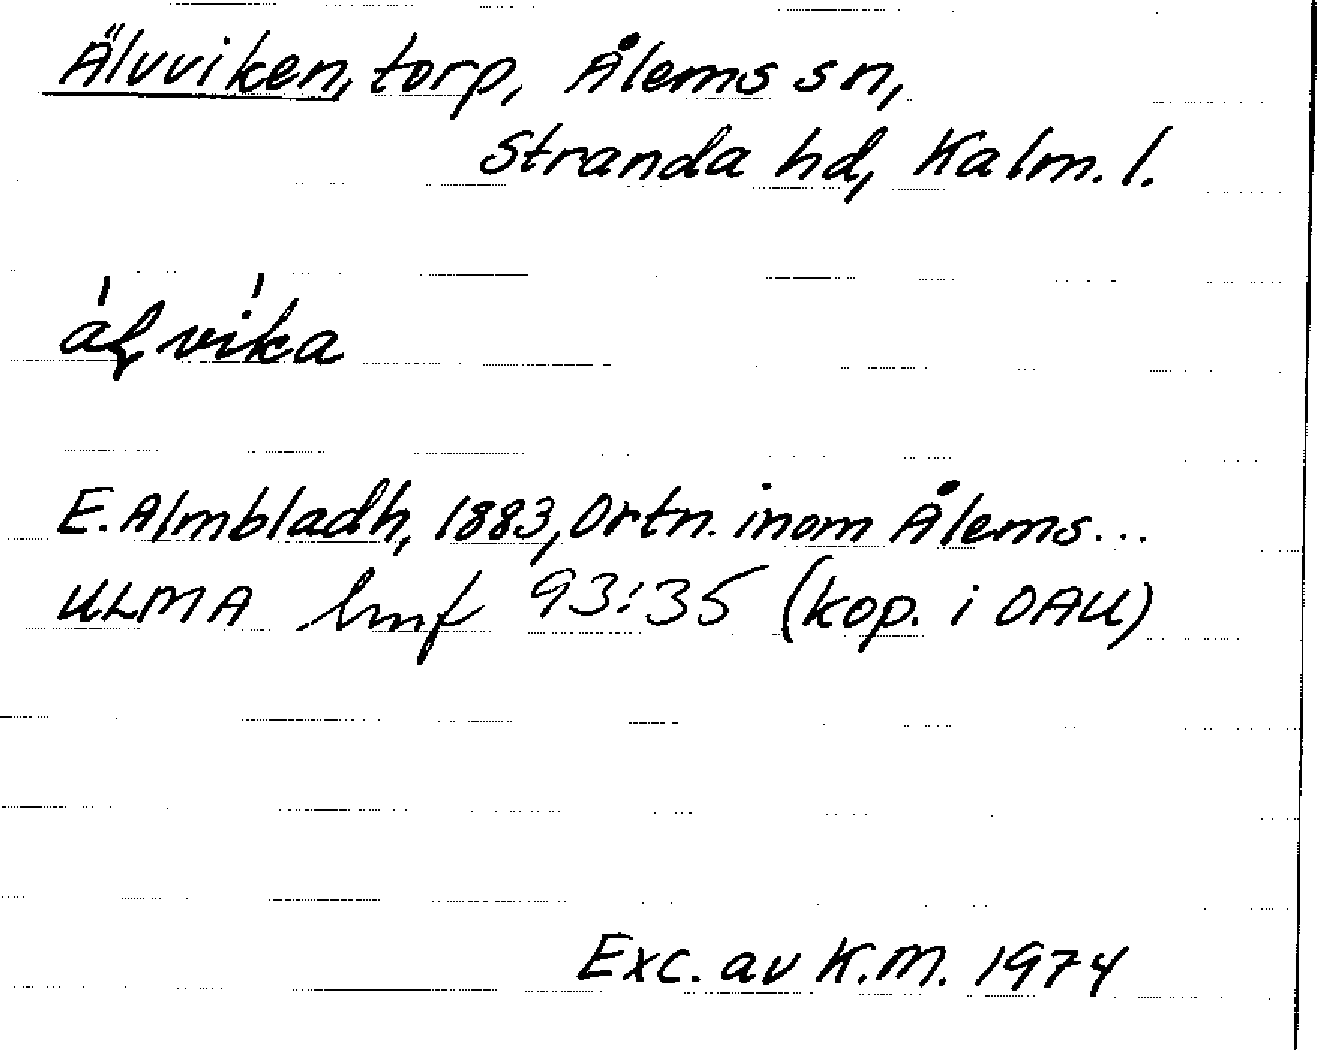 Älvviken, torp, Ålems sn,
Stranda hd, Kalm. l.
E. Almbladh, 1883, Ortn. inom Ålems...
ULMA hmf 93:35 (kop. i OAU)
Exc. av K.M. 1974